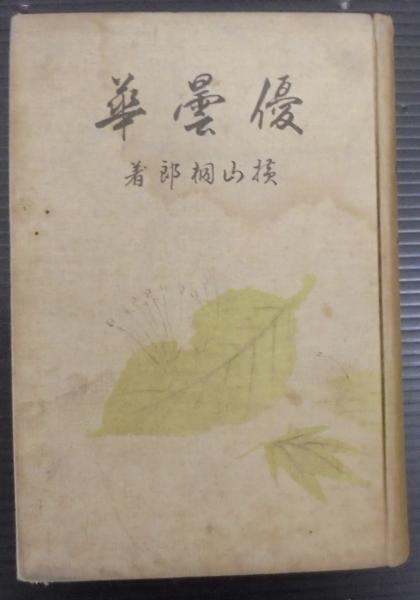 優曇華
横山桐郎著